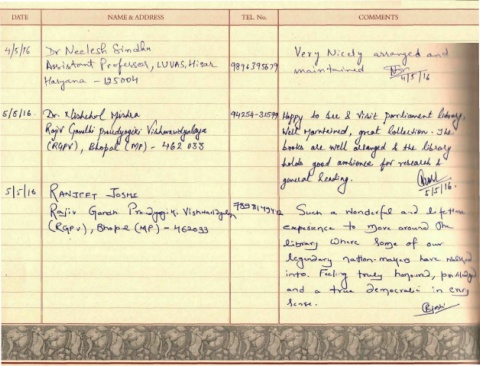 DATE NAME & ADDRESS TEL. No. COMMENTS
4/5/16 Dr Neelesh Sindhu
Assistant Professor, LUVAS, Hisar 9896395679
Haryana - 125004
Very Nicely arranged and
maintained
4/5/16
5/5/16. Dr. Mishra 94254-31599
Rajiv Gandhi Vishwavidyalaya
(RGPV), Bhopal (MP) - 462 033
Happy to See & Visit parliament library,
Well Maintained, great Collection. The
books are well arranged & the library
holds good ambience for research &
general Reading.
5/5/16.
5/5/16 RANJEET JOSHI
Rajiv Gandhi Vishwavidyalaya
(RGPV), Bhopal (MP) - 462033
Such a wonderful and lifetime
experience to move around the
library where some of our
legendary nation-mayers have walked
into. Feeling truly honored, privileged
and a true democratic in every
sense.